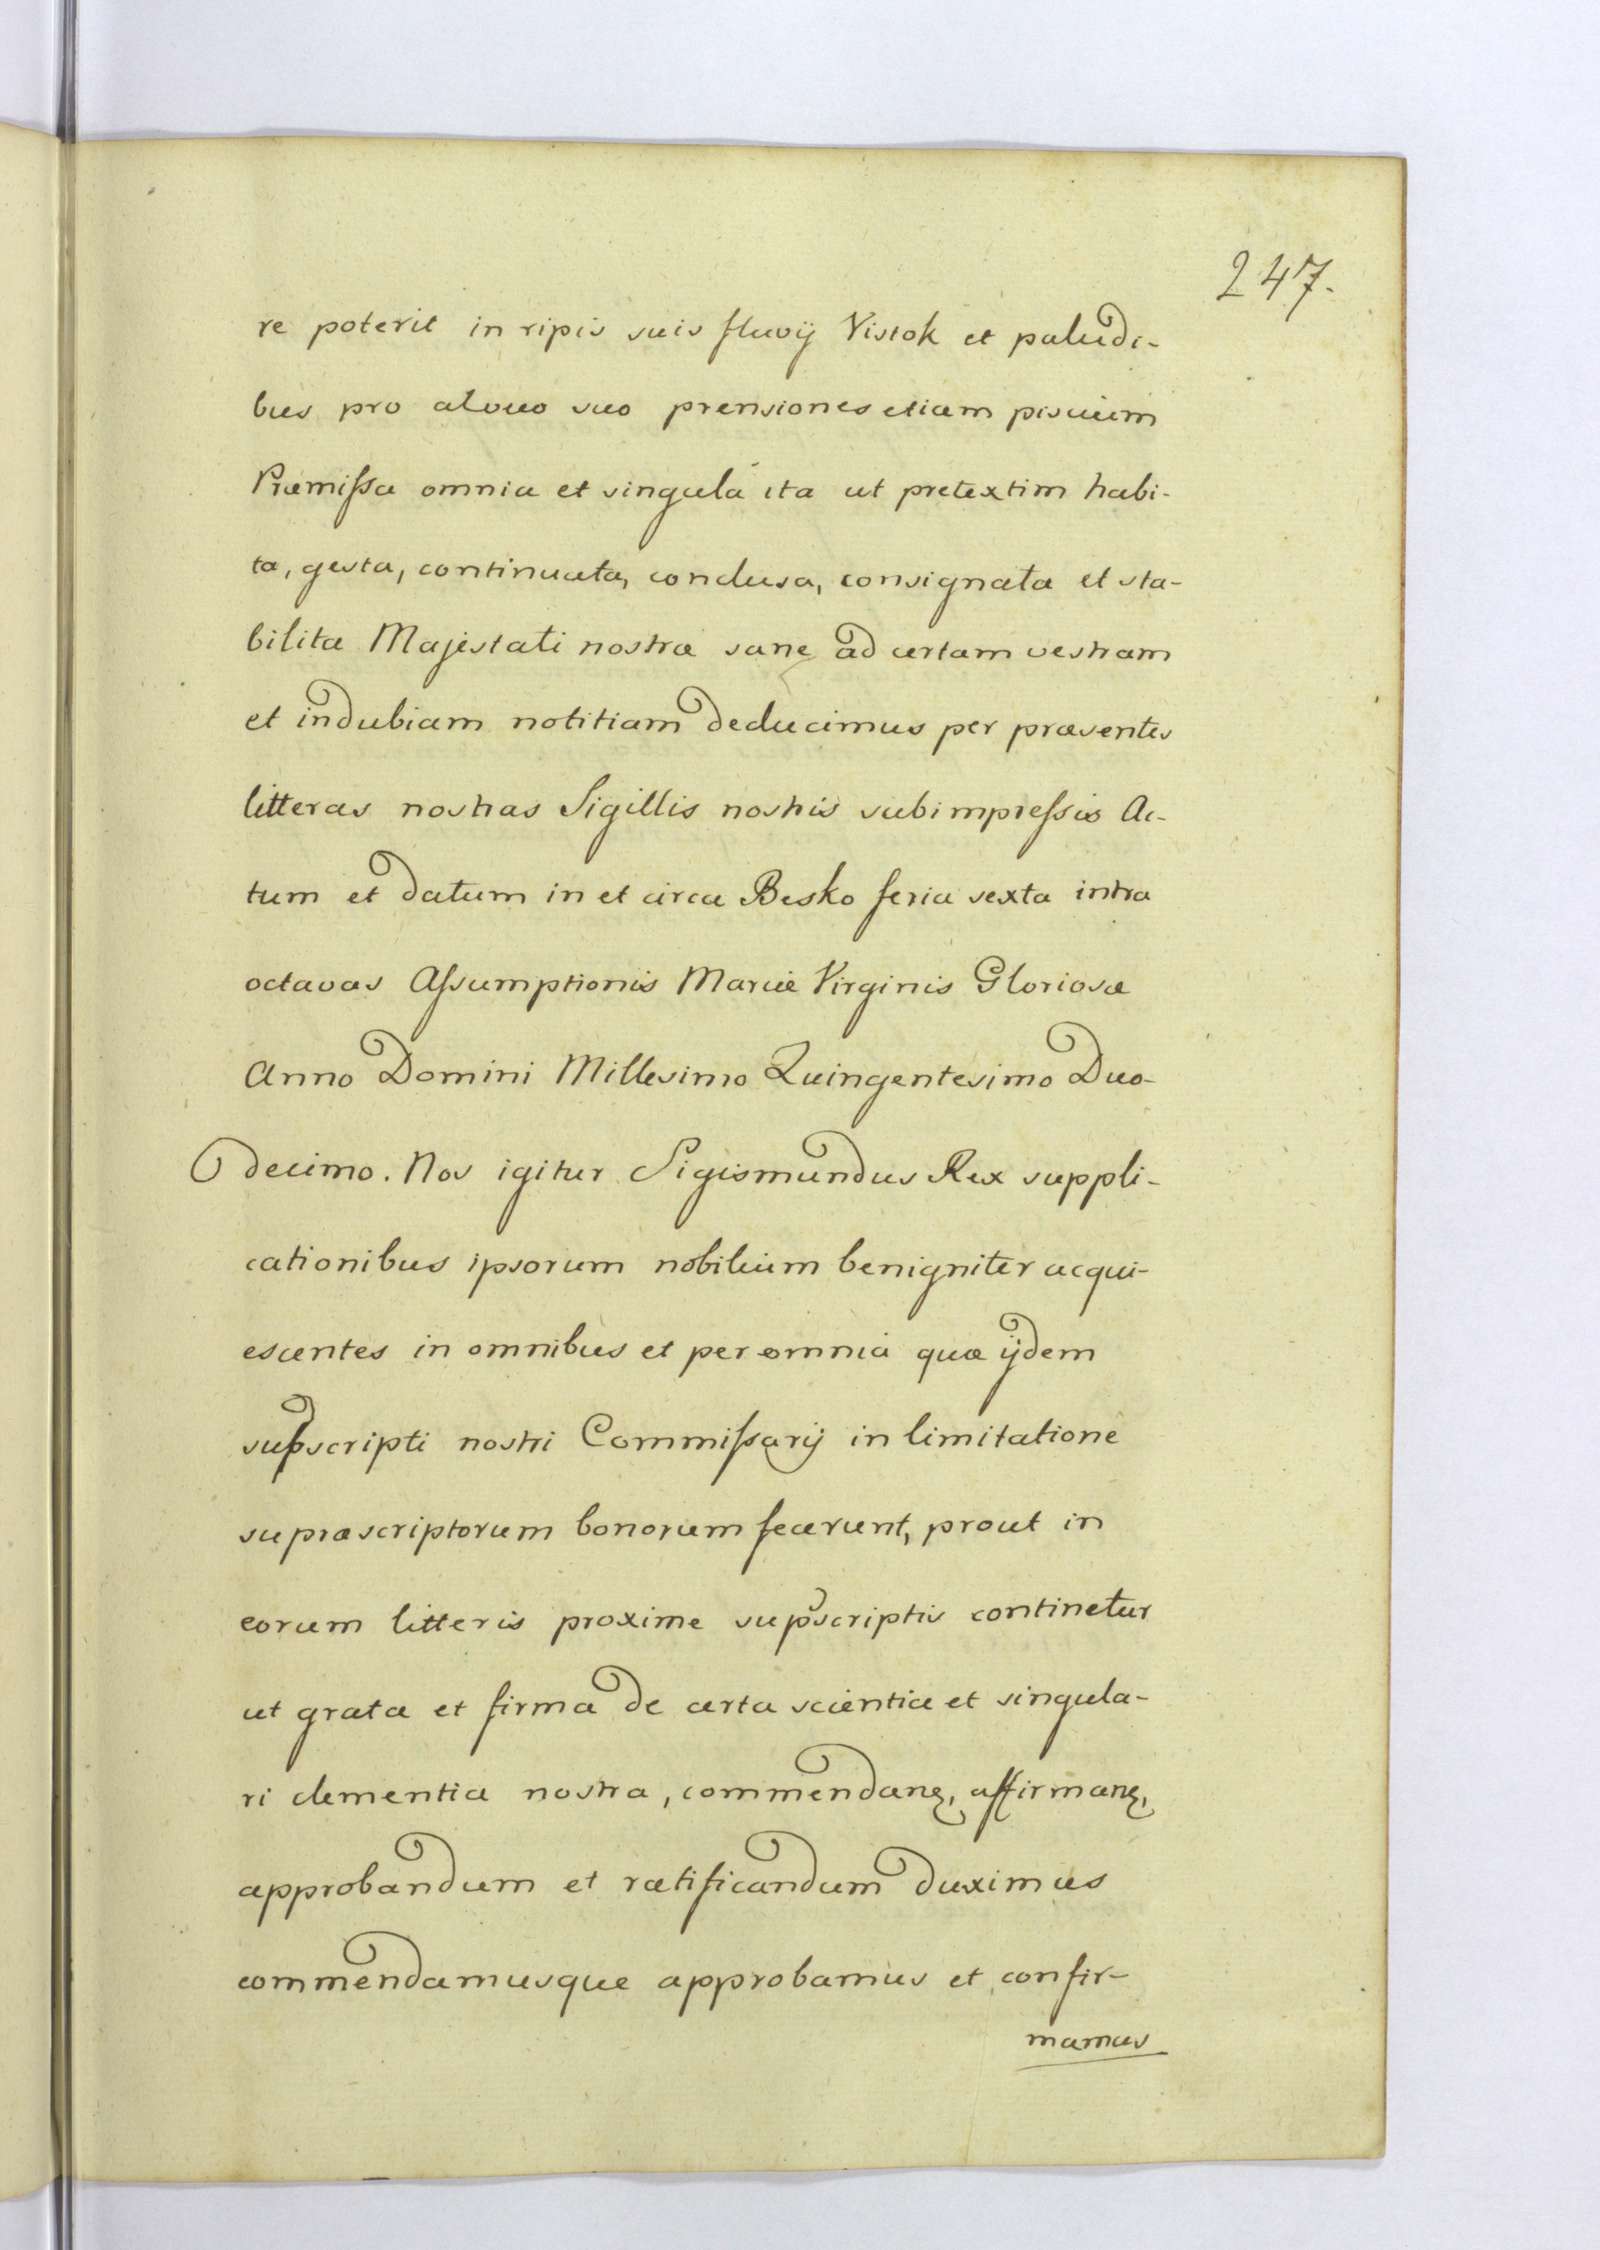 247.
re poterit in ripis suis fluvij Vistok et paludi-
bus pro alveo suo prensiones etiam piscium
Præmissa omnia et singula ita ut pretextim habi-
ta, gesta, continuata, conclusa, consignata et sta-
bilita Majestati nostræ sane ad certam vestram
et indubiam notitiam deducimus per præsentes
litteras nostras Sigillis nostris subimpressis Ac-
tum et datum in et circa Besko feria sexta intra
octavas Assumptionis Mariæ Virginis Gloriosæ
Anno Domini Millesimo Quingentesimo Duo-
decimo. Nos igitur Sigismundus Rex suppli-
cationibus ipsorum nobilium benigniter acqui-
escentes in omnibus et per omnia quæ ijdem
supscripti nostri Commissarij in limitatione
supræscriptorum bonorum fecerunt, prout in
eorum litteris proxime supscriptis continetur
ut grata et firma de certa scientia et singula-
ri clementia nostra, commendanę, affirmanę,
approbandum et ratificandum duximus
commendamusque approbamus et confir-
mamus